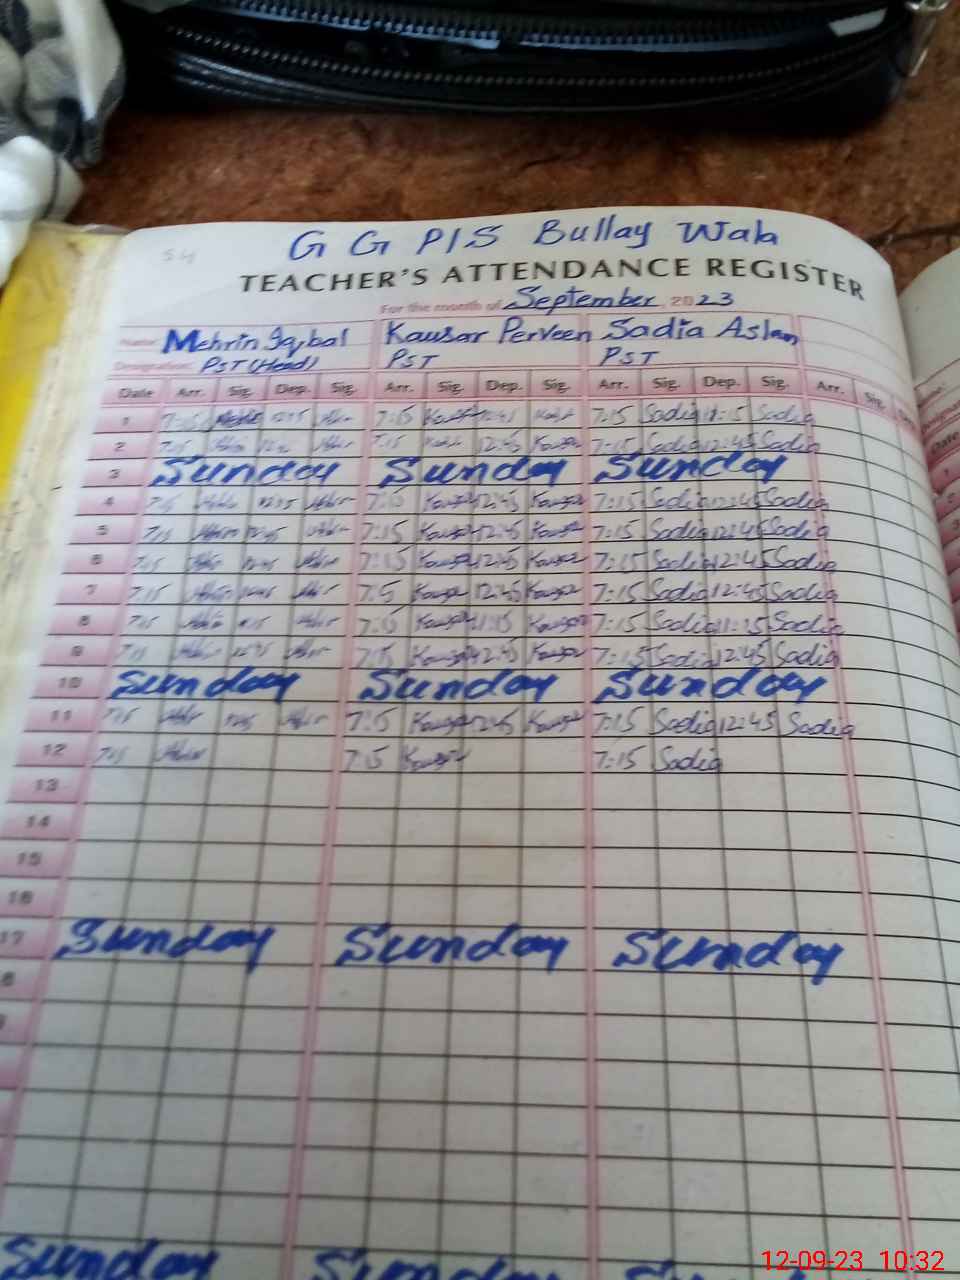 54
G G P/S Bullay Wala
TEACHER'S ATTENDANCE REGISTER
For the month of September, 2023
Name: Mehrin Iqbal Kausar Perveen Sadia Aslam
Designation: PST (Head) PST PST
Date Arr. Sig. Dep. Sig. Arr. Sig. Dep. Sig. Arr. Sig. Dep. Sig. Arr. Sig.
1 7:15 12:15 7:15 7:15 Sadia 11:15 Sadia
2 7:15 7:15 12:45 Kausar 7:15 Sadia 12:45 Sadia
3 Sunday Sunday Sunday
4 7:15 7:15 Kausar 12:45 Kausar 7:15 Sadia 12:45 Sadia
5 7:15 12:45 7:15 Kausar 12:45 Kausar 7:15 Sadia 12:45 Sadia
6 7:15 7:15 Kausar 12:45 Kausar 7:15 Sadia 12:45 Sadia
7 7:15 7:5 Kausar 12:45 Kausar 7:15 Sadia 12:45 Sadia
8 7:15 7:15 Kausar 11:15 Kausar 7:15 Sadia 11:15 Sadia
9 7:15 7:15 Kausar 12:45 Kausar 7:15 Sadia 12:45 Sadia
10 Sunday Sunday Sunday
11 7:15 7:15 Kausar 12:45 Kausar 7:15 Sadia 12:45 Sadia
12 7:15 7:15 Kausar 7:15 Sadia
13
14
15
16
17 Sunday Sunday Sunday
Sunday Sunday
12-09-23 10:32